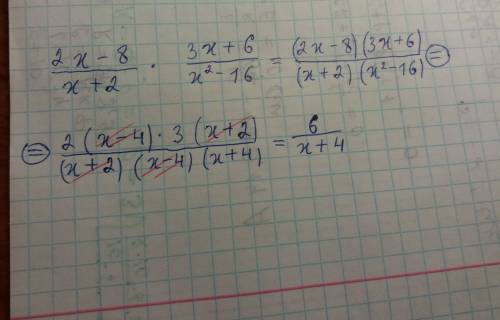 (2x-8)/(x+2) · (3x+6)/(x²-16) = (2x-8)(3x+6)/(x+2)(x²-16) ⊜
⊜ 2(x-4)·3(x+2)/(x+2)(x-4)(x+4) = 6/(x+4)